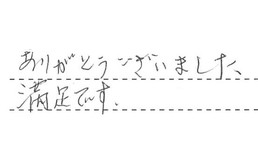 ありがとうございました、
満足です.